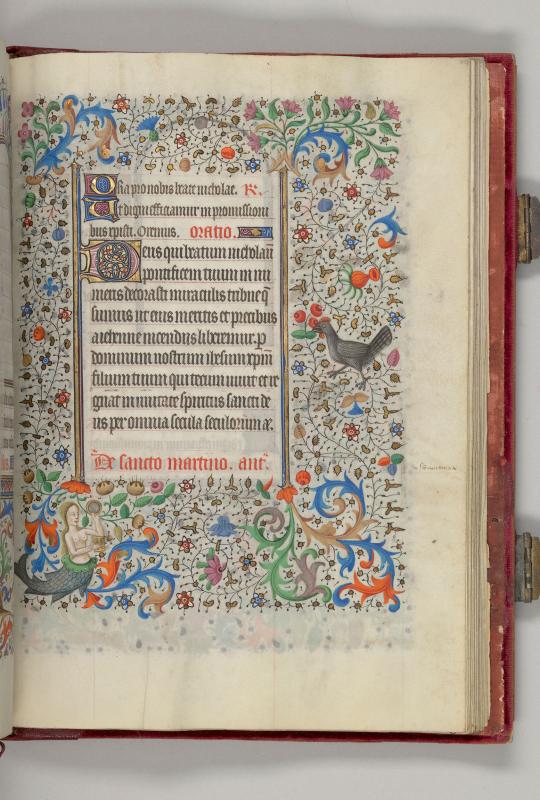 Ora pro nobis beate nicholae. R.
Ut digni efficiamur in promissioni
bus xpisti. Oremus. oratio.
Deus qui beatum nicholau
pontificem tuum in nu
meris decorasti miraculis tribue q̄
sumus ut eius meritis et precibus
a iehenne incendiis liberemur. p
dominum nostrum ihesum xpm
filium tuum qui tecum uiuit et re
gnat in unitate spiritus sancti de
us per omnia secula seculorum a.
De sancto martino. ant.